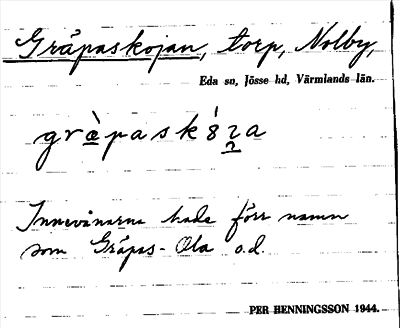 Gråpaskojan, torp, Nolby,
Eda sn, Jösse hd, Värmlands län.
gràpaskʹ8ꝛa
Innevånarna hade förr namn
som Gråpas-Ola o.d.
PER HENNINGSSON 1944.